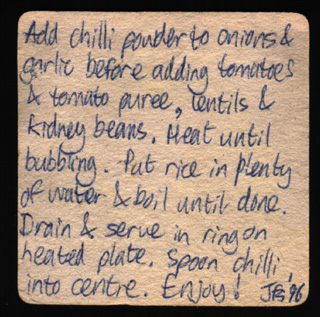 Add chilli powder to onions &
garlic before adding tomatoes
& tomato puree, lentils &
Kidney beans. Heat until
bubbling. Put rice in plenty
of water & boil until done.
Drain & serve in ring on
heated plate. Spoon chilli
into centre. Enjoy! '96